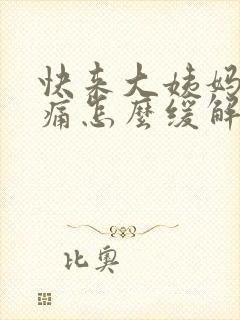 快来大姨妈
痛怎麼缓解
比奥